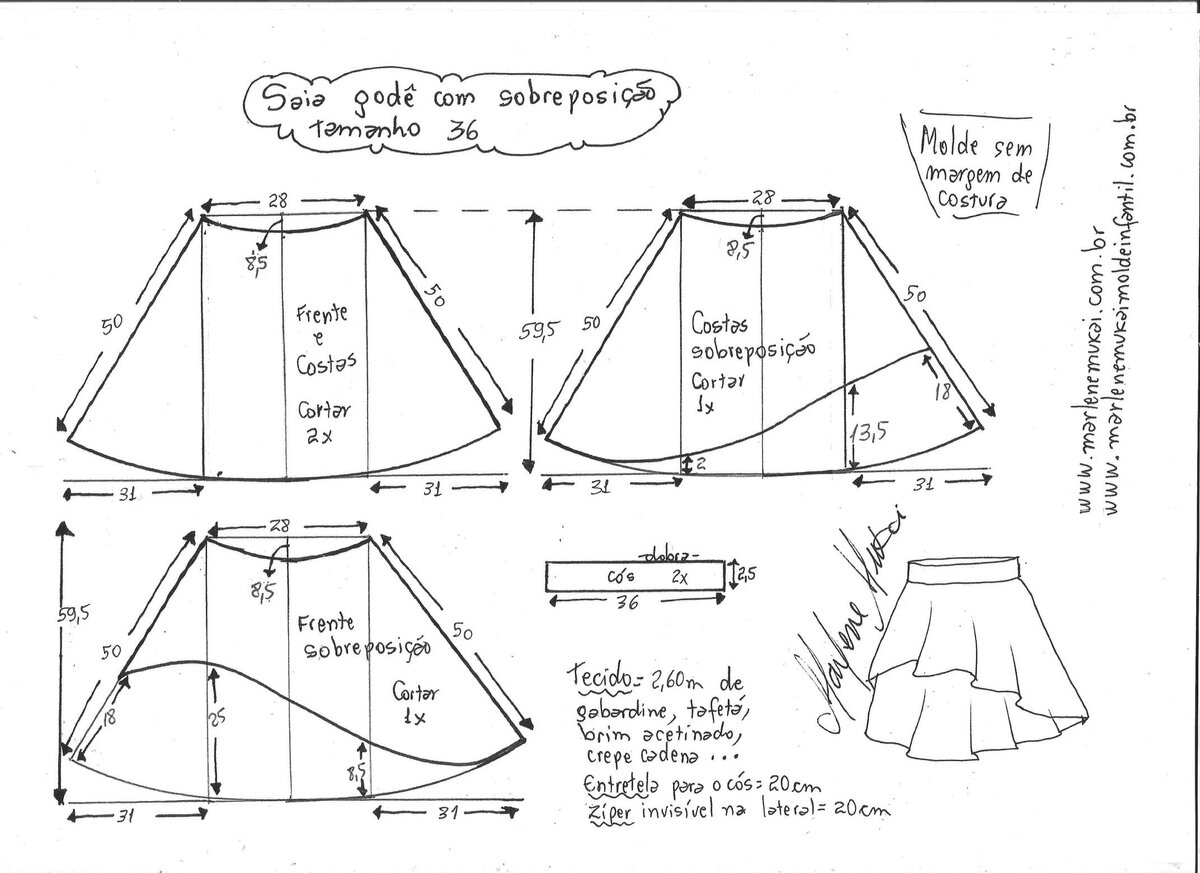 Saia godê com sobreposição
tamanho 36
Molde sem
margem de
costura
www.marlenemukai.com.br
www.marlenemukaimoldeinfantil.com.br
28
8,5
50
50
Frente
e
Costas
Cortar
2x
31
31
59,5
28
8,5
50
50
Costas
sobreposição
Cortar
1x
18
13,5
2
31
31
59,5
28
8,5
50
50
Frente
sobreposição
Cortar
1x
18
25
8,5
31
31
dobra
cós 2x
2,5
36
Marlene Mukai
Tecido= 2,60m de
gabardine, tafetá,
brim acetinado,
crepe cadena ...
Entretela para o cós= 20cm
Zíper invisível na lateral= 20cm